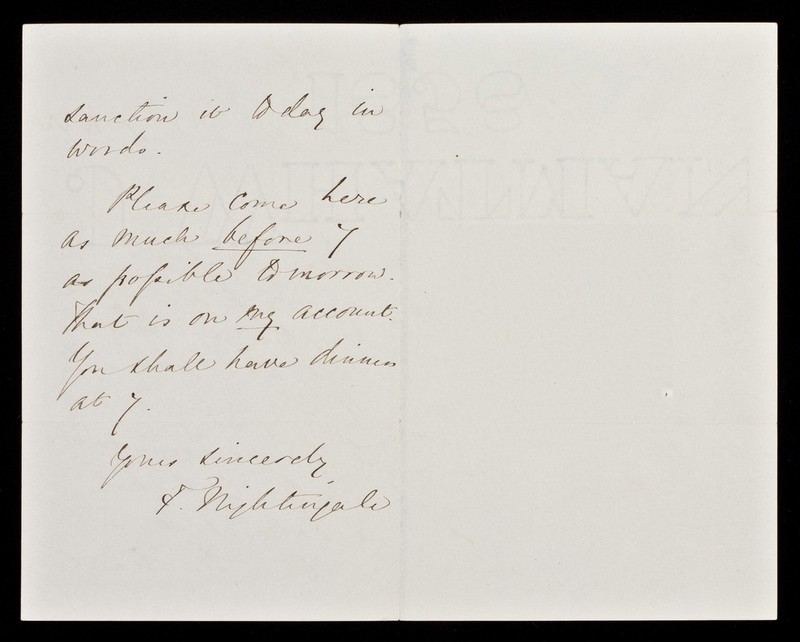 sanction it today in
words.
Please come here
as much before 7
as possible tomorrow.
That is on my account.
You shall have dinner
at 7.
Yours sincerely
F. Nightingale